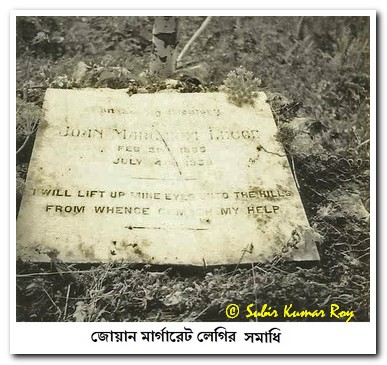 In Loving Memory
JOAN MARGARET LEGGE
FEB 21st 1885
JULY 4th 1939
I WILL LIFT UP MINE EYES UNTO THE HILLS
FROM WHENCE COMETH MY HELP
© Subir Kumar Roy
জোয়ান মার্গারেট লেগির সমাধি